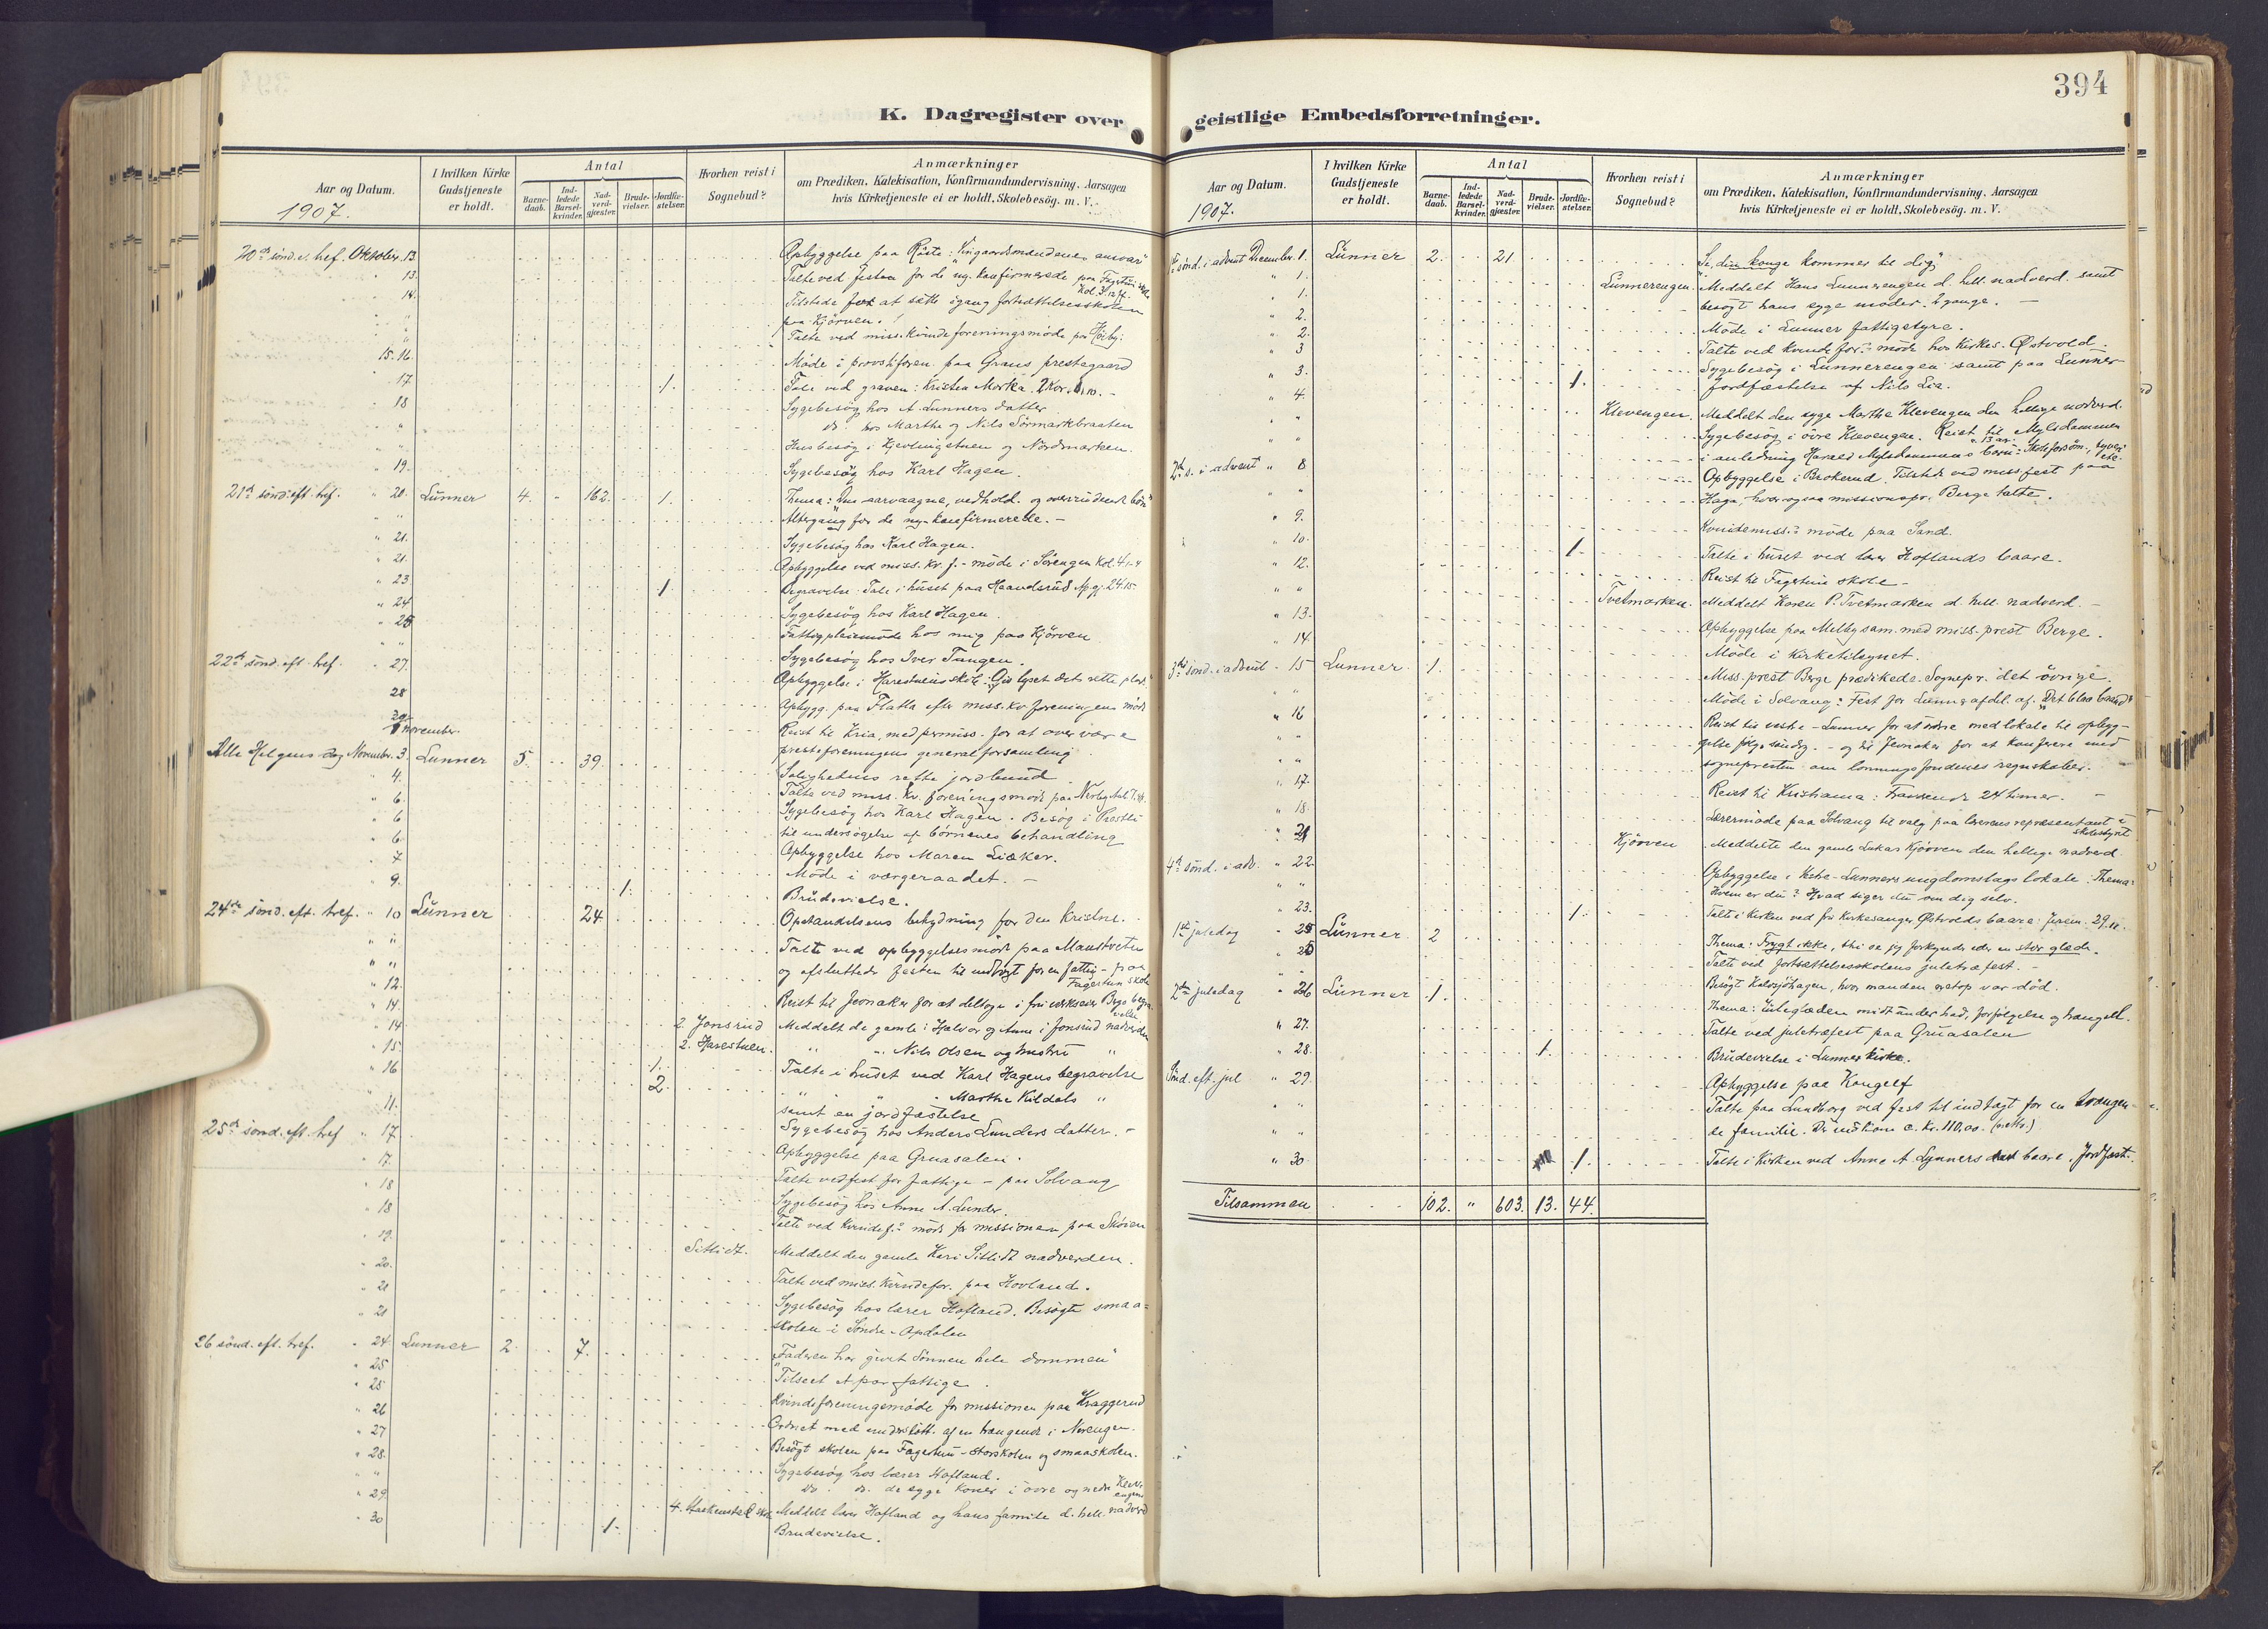 394
K. Dagregister over geistlige Embedsforretninger.
Aar og Datum.
1907.
I hvilken Kirke Gudstjeneste er holdt.
Antal
Barnedaab.
Indledede Barselkvinder.
Nadverdgjæster.
Brudevielser.
Jordfæstelser.
Hvorhen reist i Sognebud?
Anmærkninger
om Prædiken, Katekisation, Konfirmandundervisning. Aarsagen
hvis Kirketjeneste ei er holdt, Skolebesög. m. V.
20de sönd. e. tref. Oktober 13. Opbyggelse paa Röste: "Vingaardsmændenes ansvar"
" 13. Talte ved festen for de ny-konfirmerede paa Fagertun skole
Kol. 3
14. Tilstede for at sætte igang fortsættelsesskolen
paa Kjörven.
" Talte ved miss. kvindeforeningsmöde paa Höiby.
15. 16. Möde i provstiforen. paa Grans prestegaard
" 17. 1. Tale ved graven: Kristen Morka. 2 Kor.
" 18 Sygebesög hos A. Lunners datter
" do hos Marthe og Nils Sörmarkbraaten
" Husbesög i Kjevlingstuen og Nordmarken.
" 19. Sygebesög hos Karl Hagen.
21de sönd. eft. tref. " 20. Lunner 4. " 162. 1. Thema: Den aarvaagne, vedhold. og overvindende bön"
" Altergang for de ny-konfirmerede. -
" 21. Sygebesög hos Karl Hagen.
" 21. Opbyggelse ved miss. kv. f.- möde i Sörengen Kol. 4 1-4
" 23 1. Begravelse. Tale i huset paa Haandsrud Ap. gj. 24.15.
" 24 Sygebesög hos Karl Hagen.
" 25 Fattigpleiemöde hos mig paa Kjörven
" Sygebesög hos Iver Tangen.
22de sönd. eft. tref. " 27. Opbyggelse i Harestuens skole: Giv lyset dets rette plads"
28 Opbygg. paa Flatla efter miss. kv. foreningens möde
November Reist til Kria. med permiss. for at overvære
presteforeningens generalforsamling.
Alle Helgens dag November. 3. Lunner 5. 39. Salighedens rette jordbund
" 4. Talte ved miss. kv. foreningsmöde paa Nerby
" 6. Sygebesög hos Karl Hagen. Besög i Prestli
" 6 til undersögelse af börnenes behandling
" 6. Opbyggelse hos Maren Liaker.
" 7 Möde i værgeraadet. -
" 9. 1. Brudevielse.
24de sönd. eft. tref. " 10 Lunner 24. Opstandelsens betydning for den kristne.
" " Talte ved opbyggelsesmöde paa Maustveten
" " og afsluttede festen til indtægt for en fattig - paa
Fagertun skole
" 12. Reist til Jevnaker for at deltage i fru Berge begravelse
" 14. 2. Jonsrud Meddelt de gamle: Halvor og Anne i Jonsrud nadverden
" 15. 2. Harestuen. " " Nils Olsen og hustru "
" 16 1. Talte i huset ved Karl Hagens begravelse
2. " " " Marthe Kildals "
samt en jordfæstelse
25de sönd. eft. tref " 17. Sygebesög hos Anders Lunders datter. -
" 17. Opbyggelse paa Gruasalen.
" 18 Talte ved fest for fattige - paa Solvang
" 18 Sygebesög hos Anne A. Lunder.
" 19. Talte ved kvindef.s möde for missionen paa Sköien
" 20. Sittidt. Meddelt den gamle Kari Sittidt nadverden.
" 21 Talte ved miss. kvindefor. paa Hovland.
" 21 Sygebesög hos lærer Hofland. Besögte smaa-
skolen i Söndre-Opdalen
26 sönd. eft. tref. " 24. Lunner 2 7. "Faderen har givet Sönnen hele dommen"
" 25 Tilseet et par fattige.
" 25 Kvindeforeningsmöde for missionen paa Kraggerud
" 26 Ordnet med understött. af en trængende i Norengen.
" 27 Besögt skolen paa Fagertun - storskolen og smaaskolen.
" 28. Sygebesög hos lærer Hofland.
" " do. do. de syge koner i övre og nedre Klevengen
" 29 4. skole Meddelt lærer Hofland og hans familie d. hell. nadverd
" 30 1. Brudevielse.
Aar og Datum.
1907.
I hvilken Kirke Gudstjeneste er holdt.
Antal
Barnedaab.
Indledede Barselkvinder.
Nadverdgjæster.
Brudevielser.
Jordfæstelser.
Hvorhen reist i Sognebud?
Anmærkninger
om Prædiken, Katekisation, Konfirmandundervisning. Aarsagen
hvis Kirketjeneste ei er holdt, Skolebesög. m. V.
1ste sönd. i advent December. 1. Lunner 2. 21. "Se, din konge kommer til dig"
" 1. Lunnerengen. Meddelt Hans Lunnerengen d. hell. nadverd. samt
" 1. besögt hans syge moder. 2 gange. -
" 2. Möde i Lunner fattigstyre.
" 2. Talte ved kvindefor.s möde hos Kirkes. Østvold.
" 3 Sygebesög i Lunnerengen samt paa Lunner
" 3. 1. Jordfæstelse af Nils Lia.
" 4. Klevengen. Meddelt den syge Marthe Klevengen den hellige nadverd.
" Sygebesög i övre Klevengen. Reist til Mylsdammen
" i anledning Harald Mylsdammens börn: Skoleforsöm., tyveri etc.
2den s. i advent " 8 Opbyggelse i Brokerud. Tilstede ved missfest paa
" " Haga, hvor ogsaa missionspr. Berge talte.
" 9. Kvindemiss.s möde paa Sand.
" 10. 1. Talte i huset ved lærer Hoflands baare.
" 12. Reist til Fagertun skole -
" " Tvetmarken. Meddelt Karen P. Tvetmarken d. hell. nadverd. -
" 13. Opbyggelse paa Melby sam. med miss. prest Berge.
" 14. Möde i kirketilsynet.
3die sönd. i advent " 15 Lunner 1. Miss. prest Berge prædikede. Sognepr. det övrige.
" " Möde i Solvang: Fest for Lunner afdel. af "Det blaa baand"
" 16 Reist til vestre-Lunner for at ordne med lokale til opbyg-
" " gelse fölge söndag. - og til Jevnaker for at konferere med
" " sognepresten om lönningsfondenes regnskaber. -
" 17. Reist til Kristiania: Fraværende 24 timer. -
" 18. Lærermöde paa Solvang til valg paa lærernes repræsentant i skolestyret
" 21 Kjörven Meddelte den gamle Lukas Kjörven den hellige nadverd.
4de sönd. i adv. " 22 Opbyggelse i Vestre-Lunners ungdomslags lokale. Thema:
" " Hvem er du? Hvad siger du om dig selv.
" 23. 1. Talte i kirken ved fru kirkesanger Østvolds baare: Jerem. 29.11.
1ste juledag " 25 Lunner 2 Thema: Frygt ikke, thi se jeg forkynder eder en stor glæde.
" 25 Talte ved fortsættelsesskolens juletræfest. -
" " Besögt Kalvsjöhagen, hvor manden netop var död.
2den juledag " 26 Lunner 1. Thema: Juleglæden midt under had, forfölgelse og trængsel.
" 27. Talte ved juletræfest paa Gruasalen
" 28. 1. Brudevielse i Lunner kirke.
Sönd. eft. jul " 29. Opbyggelse paa Kongelf
" " Talte paa Lundborg ved fest til indtægt for en trængen-
" " de familie. Der indkom c. kr. 110,00. (netto.)
" 30 1. Talte i kirken ved Anne A. Lynners baare. Jordfæst.
Tilsammen 102. " 603. 13. 44.